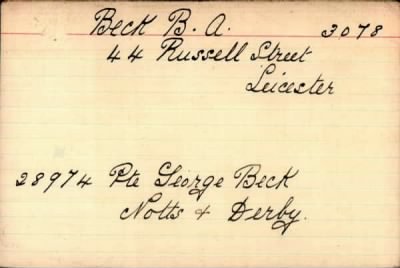 Beck B. A. 3078
44 Russell Street
Leicester
28974 Pte George Beck
Notts & Derby.